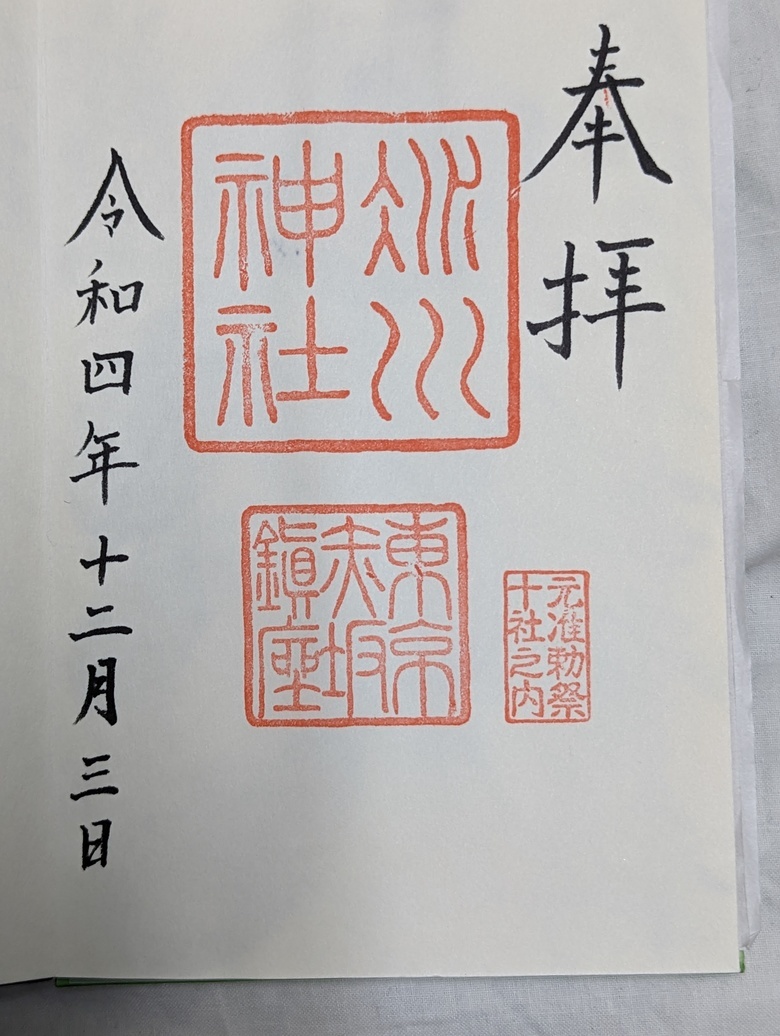 奉拝
冰川
神社
元准勅祭
十社之内
東京
赤坂
鎭座
令和四年十二月三日